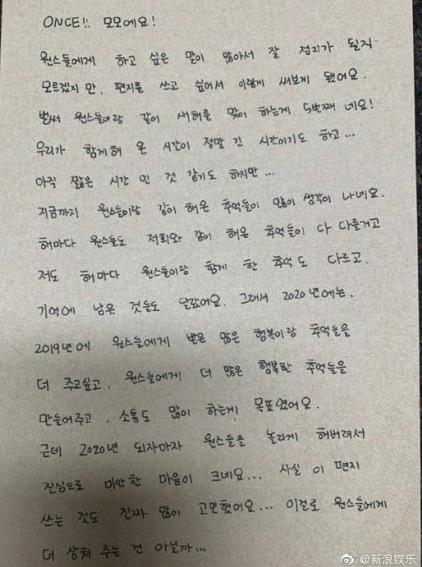 ONCE!! 모모에요!
원스들에게 하고 싶은 말이 많아서 잘 정리가 될지
모르겠지만, 편지를 쓰고 싶어서 이렇게 써보게 됐어요.
벌써 원스들이랑 같이 새해를 맞이 하는게 5번째 네요!
우리가 함께해 온 시간이 정말 긴 시간이기도 하고...
아직 짧은 시간 인 것 같기도 하지만...
지금까지 원스들이랑 같이 해온 추억들이 많이 생각이 나네요.
해마다 원스들도 저희와 같이 해온 추억들이 다 다를거고
저도 해마다 원스들이랑 함께 한 추억도 다르고.
기억에 남은 것들도 달랐어요. 그래서 2020년에는.
2019년에 원스들에게 받은 많은 행복이랑 추억들을
더 주고싶고, 원스들에게 더 많은 행복한 추억들을
만들어주고, 소통도 많이 하는게 목표였어요.
근데 2020년 되자마자 원스들을 놀라게 해버려서
진심으로 미안한 마음이 크네요... 사실 이 편지
쓰는 것도 진짜 많이 고민했어요... 이걸로 원스들에게
더 상처 주는 건 아닐까...
@新浪娱乐